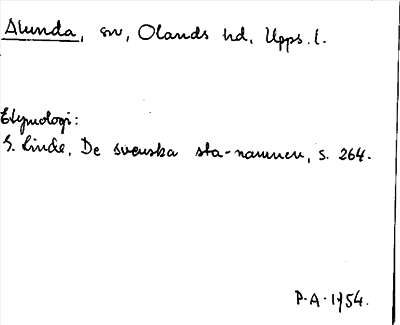 Alunda, sn, Olands hd, Upps. l.
Etymologi:
G. Linde, De svenska sta-namnen, s. 264.
P.A. 1954.